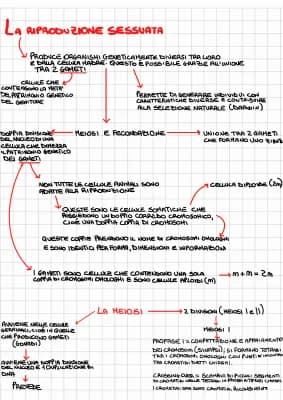 LA RIPRODUZIONE SESSUATA
PRODUCE ORGANISMI GENETICAMENTE DIVERSI TRA LORO
E DALLA CELLULA MADRE. QUESTO È POSSIBILE GRAZIE ALL'UNIONE
TRA 2 GAMETI
CELLULE CHE
CONTENGONO LA METÀ
DEL PATRIMONIO GENETICO
DEL GENITORE
PERMETTE DI GENERARE INDIVIDUI CON
CARATTERISTICHE DIVERSE E CONTRIBUIRE
ALLA SELEZIONE NATURALE (DARWIN)
DOPPIA DIVISIONE
DEL NUCLEO DI UNA
CELLULA CHE DIMEZZA
IL PATRIMONIO GENETICO
DEI GAMETI
MEIOSI E FECONDAZIONE
UNIONE TRA 2 GAMETI
CHE FORMANO UNO
NON TUTTE LE CELLULE ANIMALI SONO
ADATTE ALLA RIPRODUZIONE
CELLULA DIPLOIDE (2n)
QUESTE SONO LE CELLULE SOMATICHE CHE
POSSIEDONO UN DOPPIO CORREDO CROMOSOMICO,
CIOÈ UNA DOPPIA COPPIA DI CROMOSOMI
QUESTE COPPIE PRENDONO IL NOME DI CROMOSOMI OMOLOGHI
E SONO IDENTICI PER FORMA, DIMENSIONI E INFORMAZIONI
I GAMETI SONO CELLULE CHE CONTENGONO UNA SOLA
COPPIA DI CROMOSOMI OMOLOGHI E SONO CELLULE APLOIDI (n)
n + n = 2n
LA MEIOSI
2 DIVISIONI (MEIOSI I E II)
AVVIENE NELLE CELLULE
GERMINALI, CIOÈ IN QUELLE
CHE PRODUCONO GAMETI
(GONADI)
MEIOSI I
PROFASE I: CONDENSAZIONE E APPAIAMENTO
DEI CROMOSOMI (SINAPSI), SI FORMANO TETRADI
TRA I CROMOSOMI OMOLOGHI CON PUNTI DI
TRA CROMATIDI DETTI CHIASMI.
AVVIENE UNA DOPPIA DIVISIONE
DEL NUCLEO E 1 DUPLICAZIONE DI
DNA
CROSSING OVER: SCAMBIO DI PICCOLI SEGMENTI
DI CROMATIDI NELLE TETRADI
PREVEDE